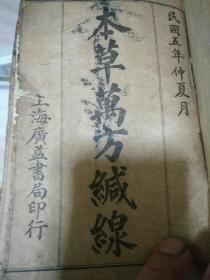 民國五年仲夏月
本草萬方緘線
上海廣益書局印行